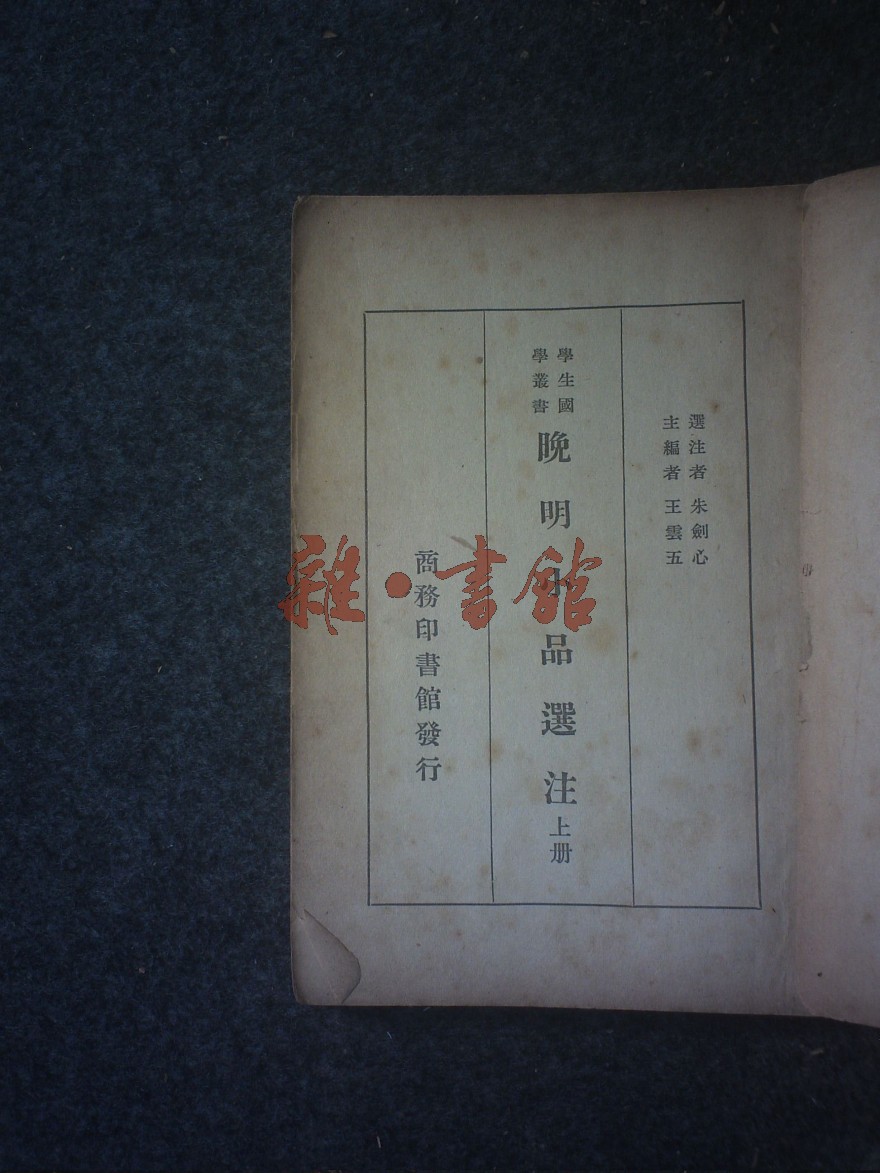 選注者 朱劍心
主編者 王雲五
學生國
學叢書
晚明小品選注上册
商務印書館發行
雜·書館